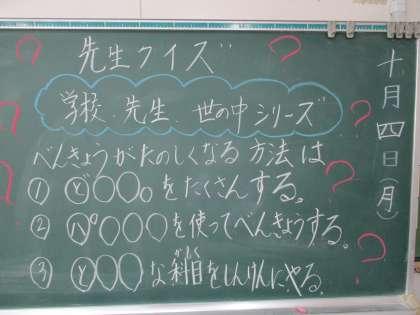 先生クイズ
学校、先生、世の中シリーズ
べんきょうがたのしくなる方法は
① ど〇〇。をたくさんする。
② パ〇〇〇を使ってべんきょうする。
③ と〇〇な科目をしんけんにやる。
かもく
十月四日(月)
? ? ? ? ? ? ?